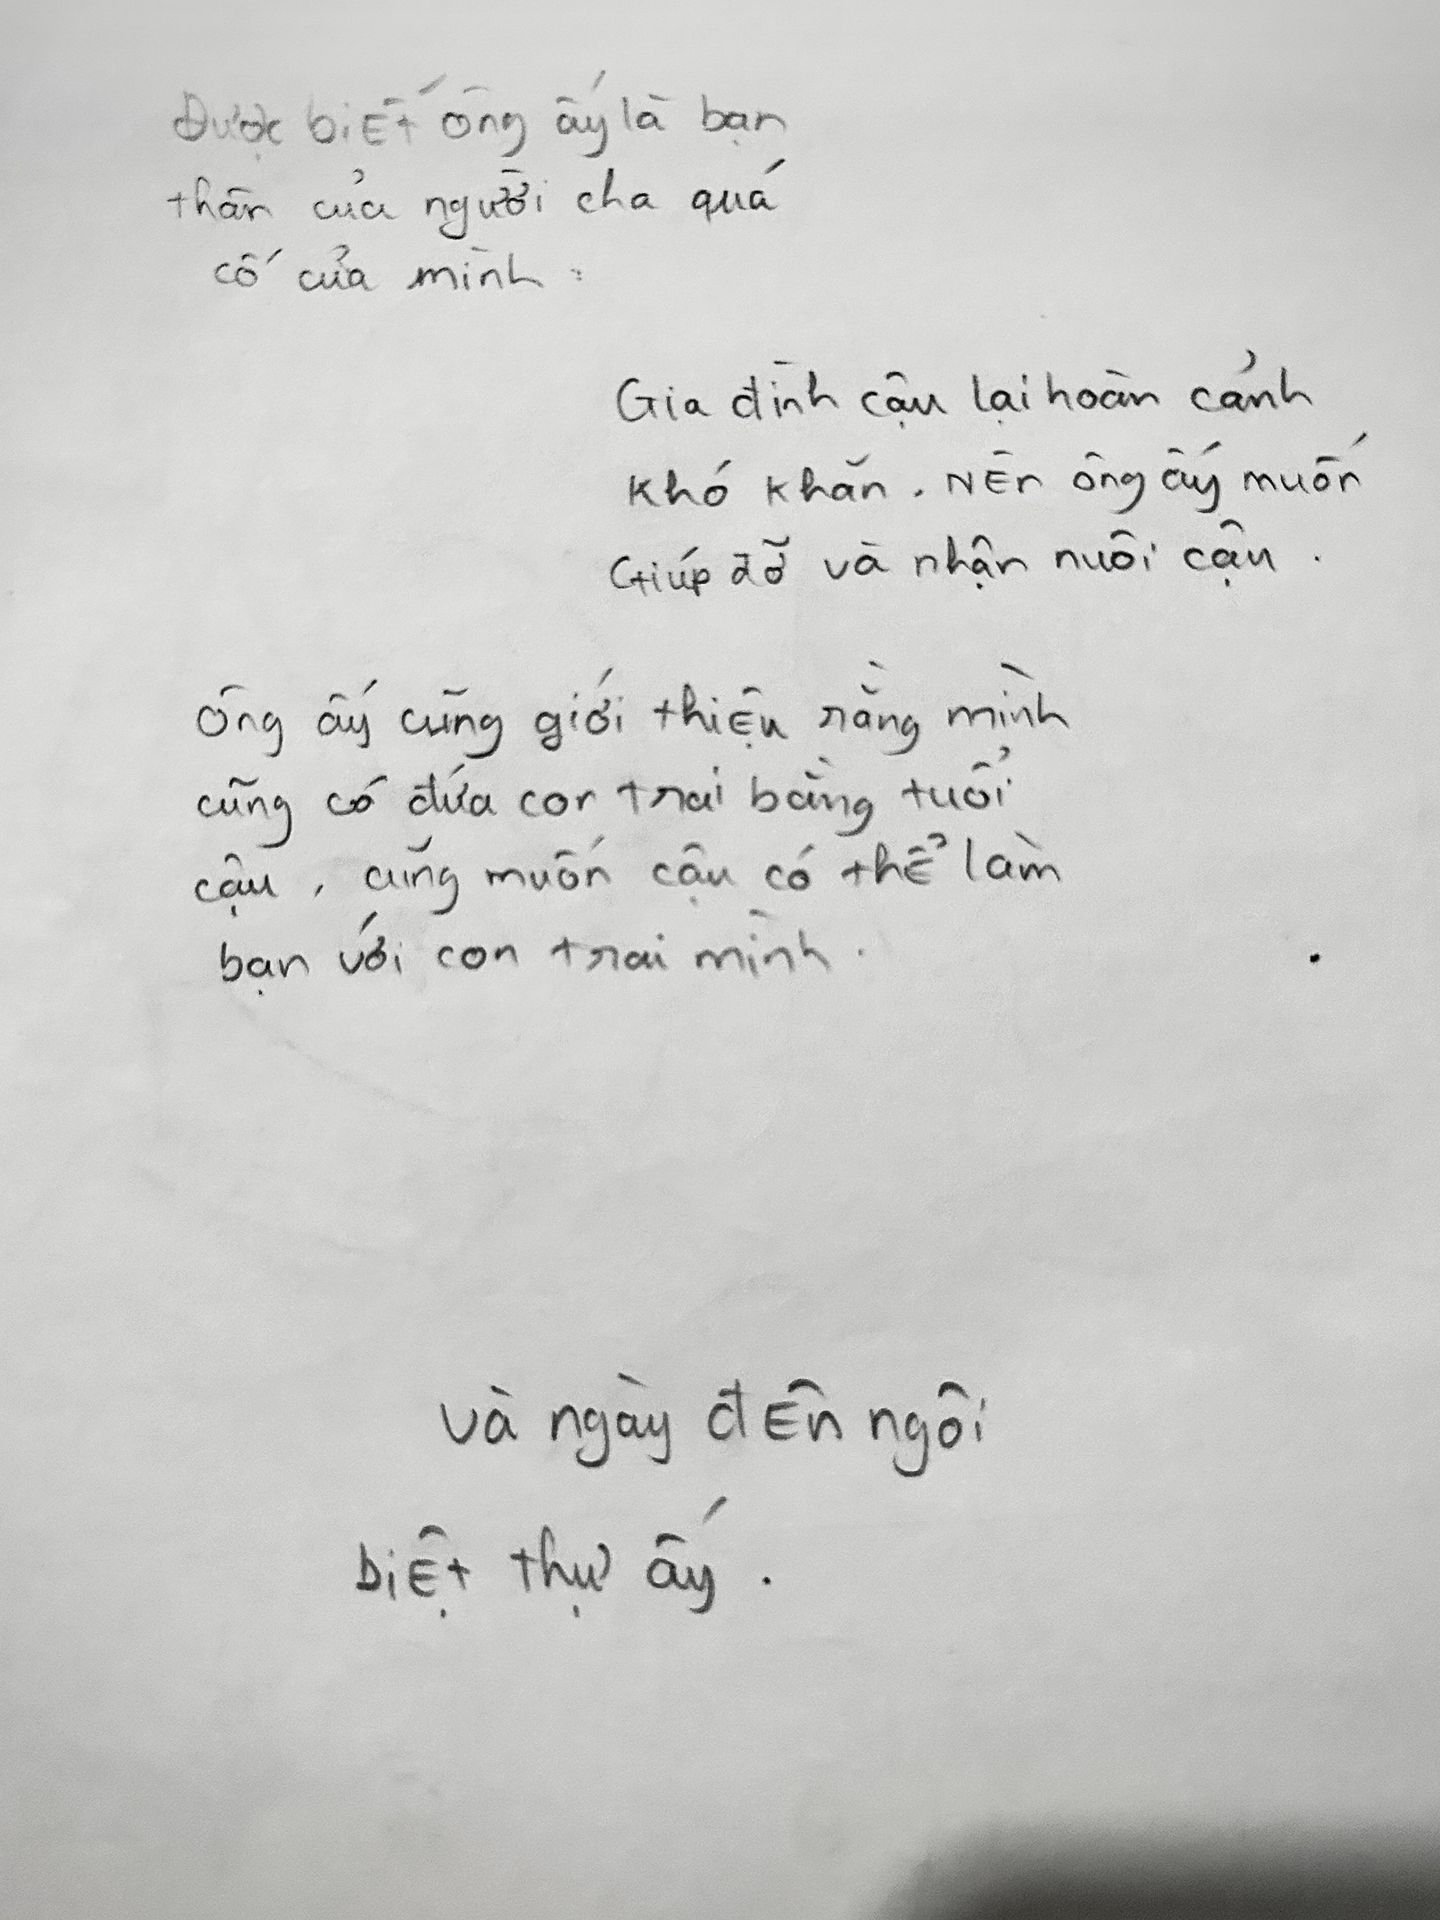 Được biết ông ấy là bạn
thân của người cha quá
cố của mình.
Gia đình cậu lại hoàn cảnh
khó khăn. Nên ông ấy muốn
Giúp đỡ và nhận nuôi cậu.
Ông ấy cũng giới thiệu rằng mình
cũng có đứa con trai bằng tuổi
cậu, cũng muốn cậu có thể làm
bạn với con trai mình.
Và ngày đến ngôi
biệt thự ấy.